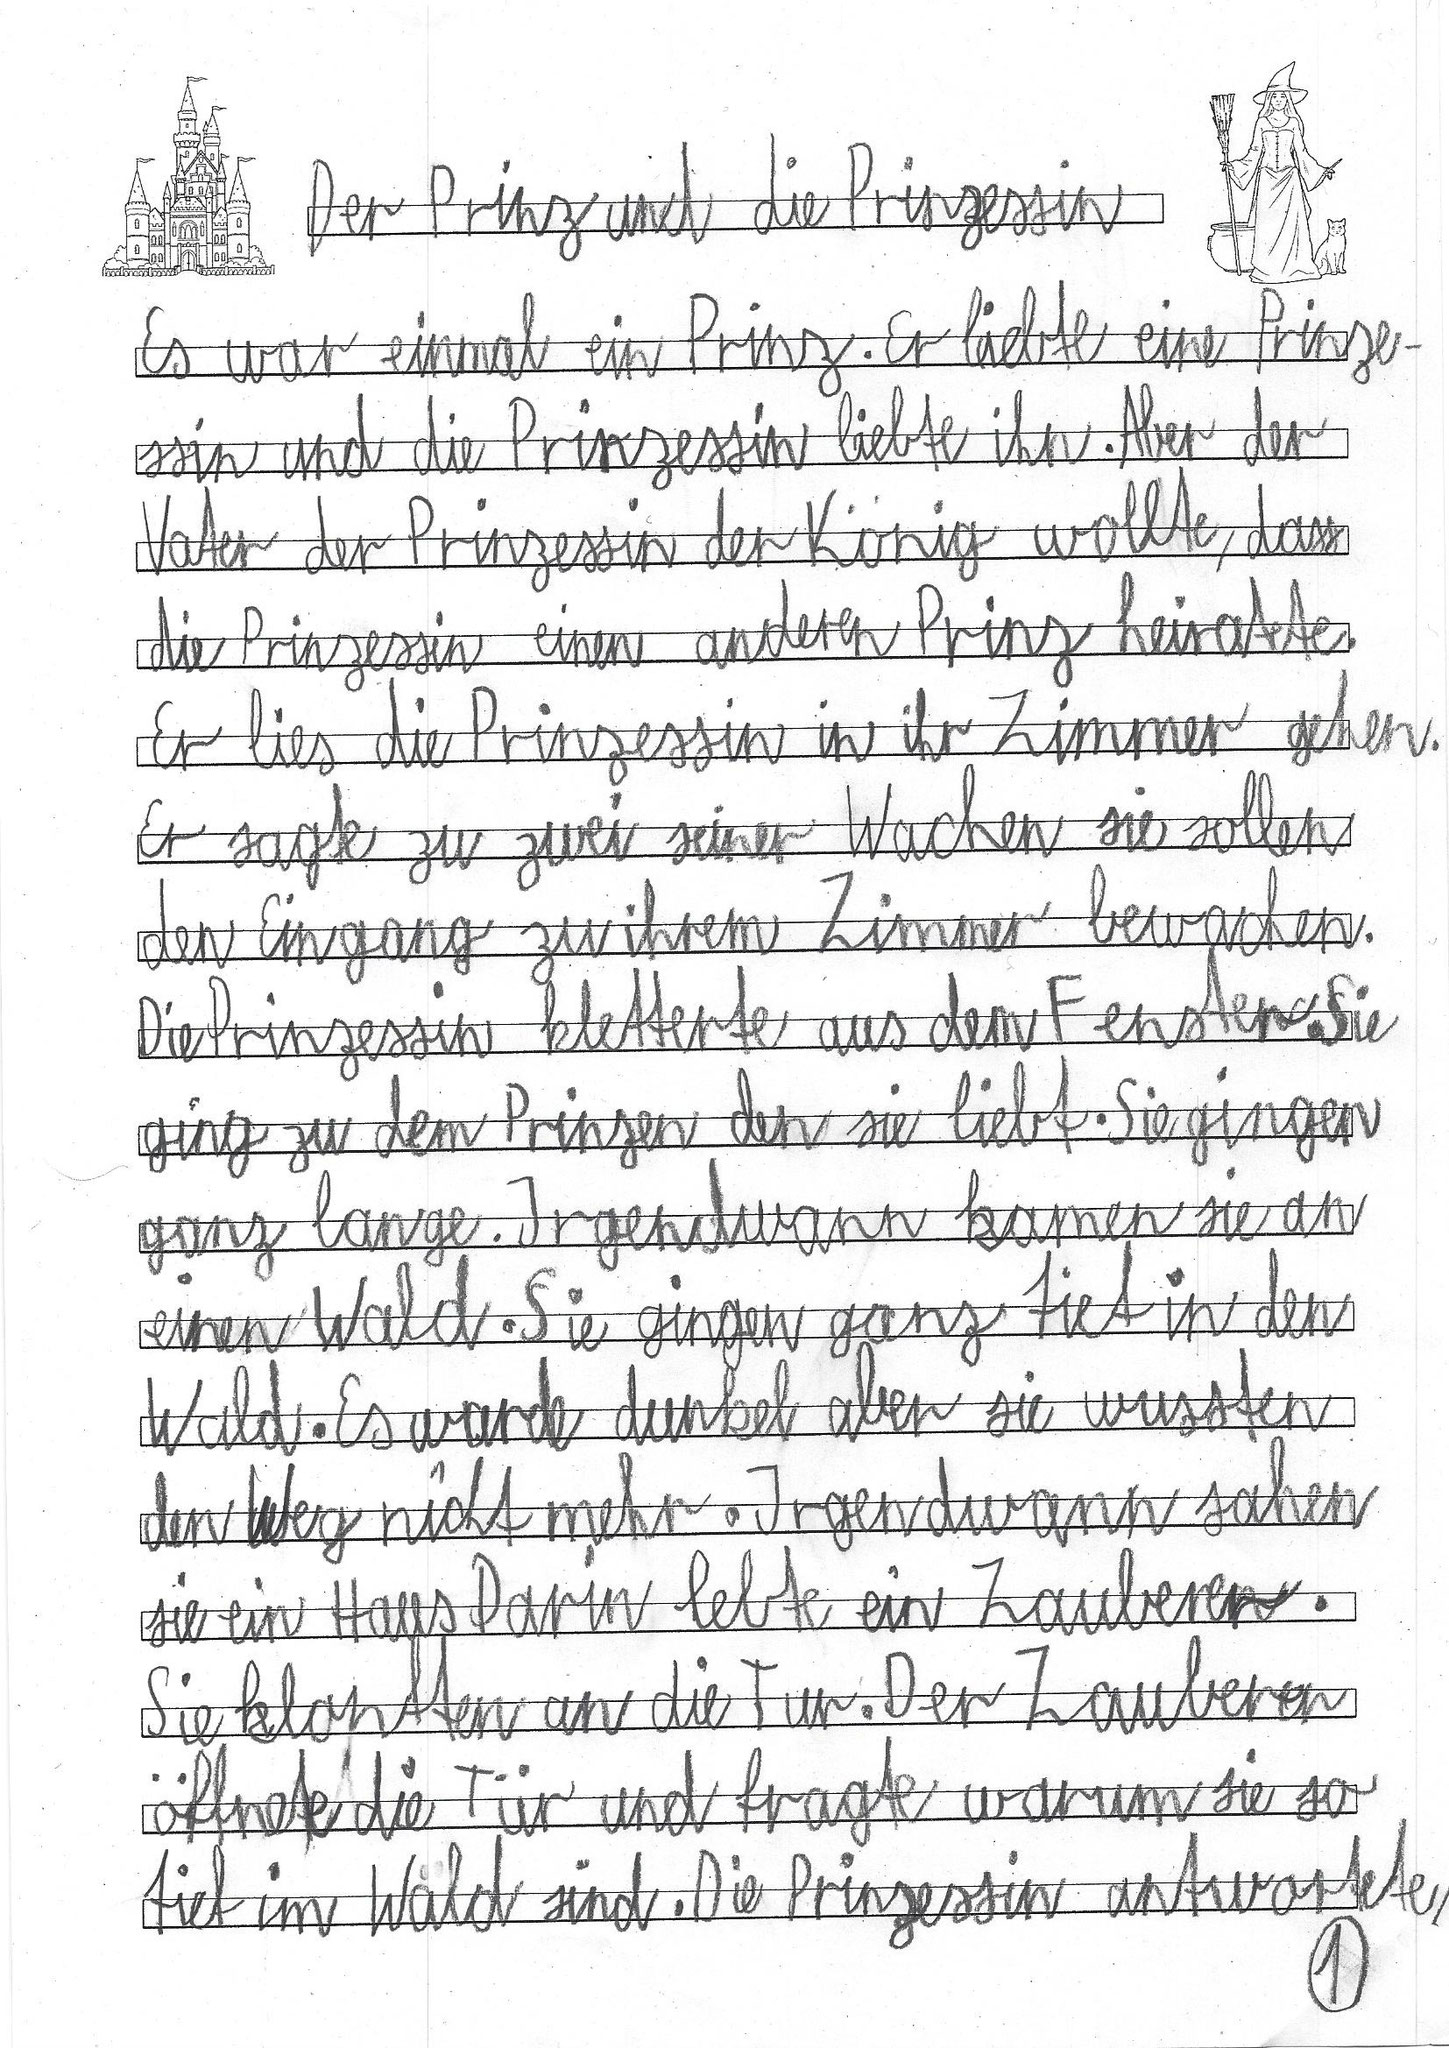 Der Prinz und die Prinzessin
Es war einmal ein Prinz. Er liebte eine Prinze-
ssin und die Prinzessin liebte ihn. Aber der
Vater der Prinzessin der König wollte, dass
die Prinzessin einen anderen Prinz heiratete.
Er lies die Prinzessin in ihr Zimmer gehen.
Er sagte zu zwei seiner Wachen sie sollen
den Eingang zu ihrem Zimmer bewachen.
Die Prinzessin kletterte aus dem Fenster. Sie
ging zu dem Prinzen den sie liebt. Sie gingen
ganz lange. Irgendwann kamen sie an
einen Wald. Sie gingen ganz tief in den
Wald. Es wurde dunkel aber sie wussten
den Weg nicht mehr. Irgendwann sahen
sie ein Haus Darin lebte ein Zauberer.
Sie klopften an die Tur. Der Zauberer
öffnete die Tür und fragte warum sie so
tief im Wald sind. Die Prinzessin antwortete,
1